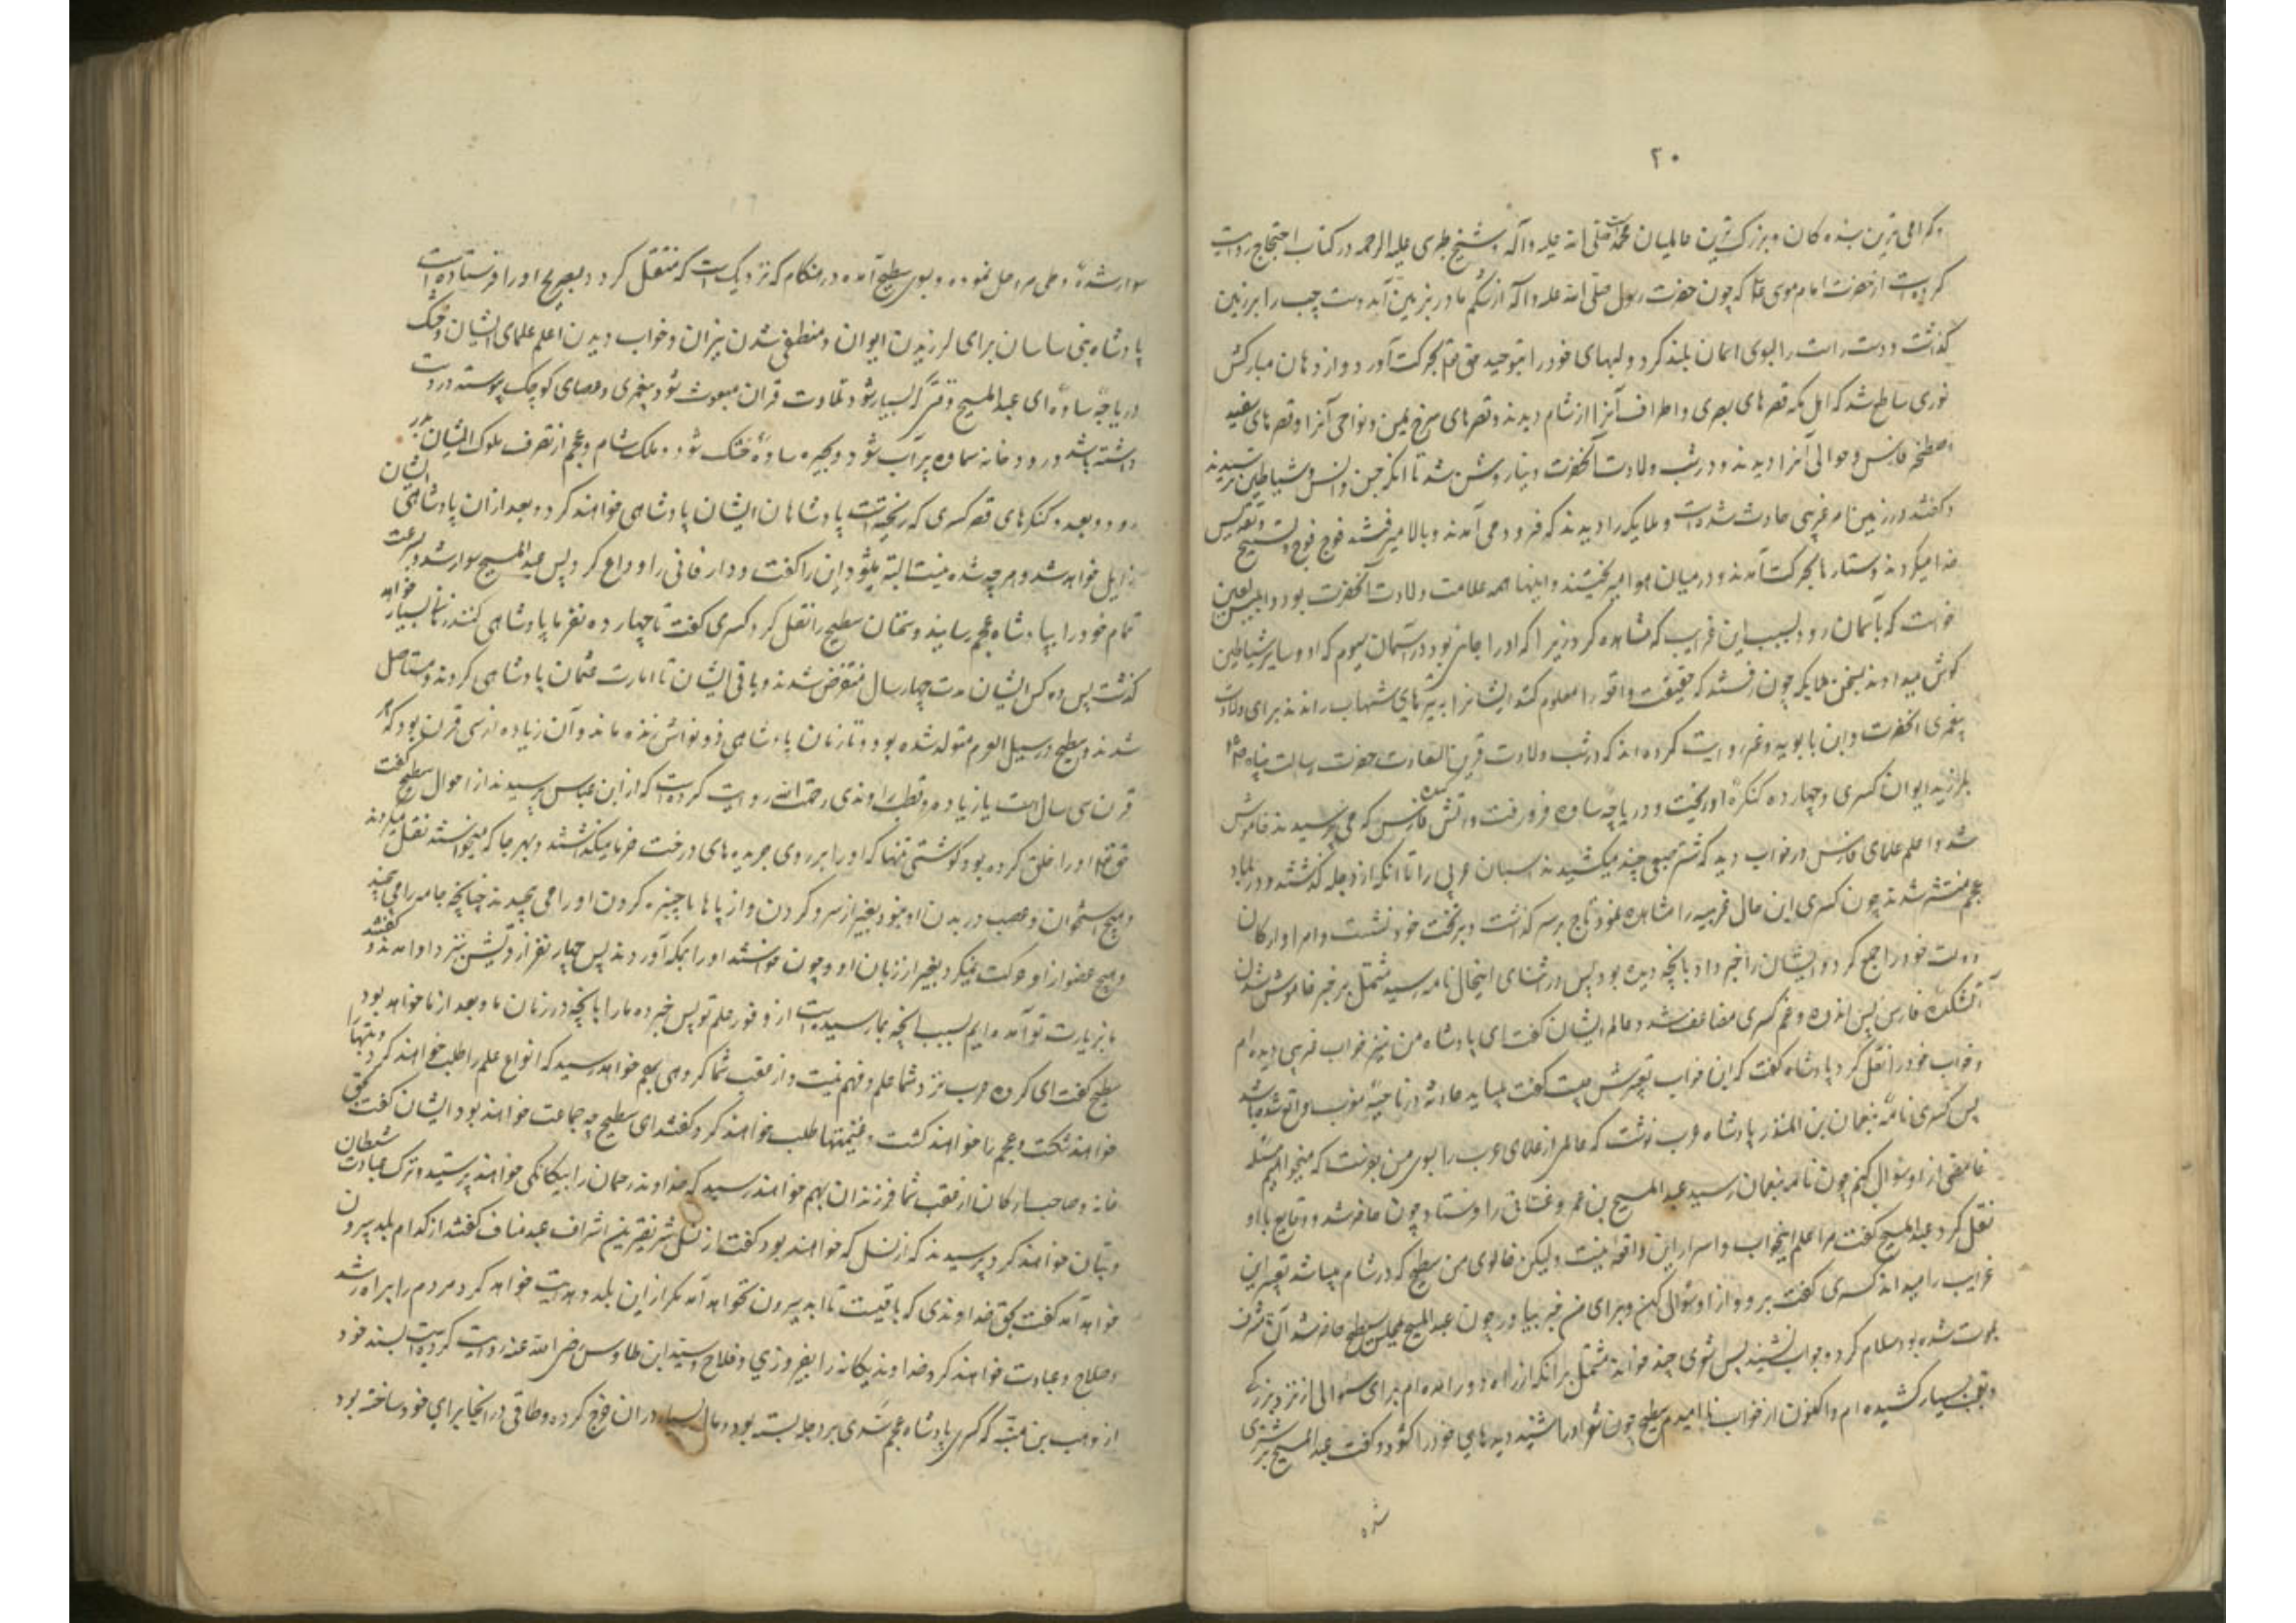 ٢٠
و گرامی ترین بنده کان و بزرک ترین عالمیان محمد است صلی الله علیه و اله و شیخ طبری علیه الرحمه در کتاب احتجاج روایت
کرده است از حضرت امام موسی ع که چون حضرت رسول صلی الله علیه و اله از شکم مادر بزمین آمد دست چپ را بر زمین
کذاشت و دست راست را بسوی اسمان بلند کرد و لبهای خود را بتوحید حق تعا بحرکت آورد و از دهان مبارکش
نوری ساطع شد که اهل مکه قصرهای بصری و اطراف آنرا از شام دیدند و قصرهای سرخ یمن و نواحی آنرا و قصرهای سفید
اصطخر فارس و حوالی آنرا دیدند و در شب ولادت آنحضرت دنیا روشن شد تا انکه جن و انس و شیاطین ترسیدند
و کفتند در زمین امر غریبی حادث شده است و ملایکه را دیدند که فرود می آمدند و بالا میرفتند فوج فوج و تسبیح و تقدیس
خدا میکردند و ستارها بحرکت آمدند و در میان هوا میریختند و اینها همه علامت ولادت آنحضرت بود و ابلیس لعین
خواست که بآسمان رود بسبب این غرایب که مشاهده کرد زیرا که او را جایی بود در آسمان سیوم که او و سایر شیاطین
کوش میدادند بسخن ملایکه چون رفتند که حقیقت واقعه را معلوم کنند ایشانرا به تیرهای شهاب راندند برای دلالت
پیغمبری انحضرت و ابن بابویه و غیره روایت کرده اند که در شب ولادت قرین السعادت حضرت رسالت پناه ص
بلرزید ایوان کسری و چهارده کنکره او ریخت و دریاچه ساوه فرو رفت و آتشکده فارس که می پرسیدند خاموش
شد و اعلم علمای فارس در خواب دید که شتر صعبی چند میکشیدند اسبان عربی را تا انکه از دجله کذشتند و در بلاد
عجم منتشر شدند چون کسری این حال غریب را مشاهده نمود تاج بر سر کذاشت و بر تخت خود نشست و امرا و ارکان
دولت خود را جمع کرد و ایشان را خبر داد بانچه دیده بود پس در اثنای اینحال نامه رسید مشتمل بر خبر خاموش شدن
آتشکده فارس پس اندوه و غم کسری مضاعف شد و عالم ایشان کفت ای پادشاه من نیز خواب غریبی دیده ام
و خواب خود را نقل کرد پادشاه کفت که این خواب تعبیرش چیست کفت میباید حادثه در ناحیه مغرب واقع شده باشد
پس کسری نامه بنعمان بن المنذر پادشاه عرب نوشت که عالمی از علمای عرب را بسوی من بفرست که میخواهم مسئله
غامضی از او سوال کنم چون نامه بنعمان رسید عبد المسیح بن عمرو غسانی را فرستاد چون حاضر شد و وقایع باو
نقل کرد عبد المسیح کفت مرا علم اینخواب و اسرار این واقعه نیست ولیکن خالوی من سطیح که در شام میباشد تعبیر این
غرایب را میداند کسری کفت برو و از او سوال کن و برای من خبر بیاور چون عبد المسیح بمجلس سطیح حاضر شد آن مشرف
بموت شده بود سلام کرد و جواب نشنید پس شعری چند خواند مشتمل بر انکه از راه دور امده ام برای سوالی از نزد بزرکی
و تعب بسیار کشیده ام و اکنون از جواب ناامیدم سطیح چون شعر او را شنید دیدهای خود را کشود و کفت عبد المسیح بر شتری
شده
سوار شده و طی مراحل نموده و بسوی سطیح آمده در هنکام که نزدیک است که منتقل کردد بضریح او را فرستاده است
پادشاه بنی ساسان برای لرزیدن ایوان و منطفی شدن نیران و خواب دیدن اعلم علمای ایشان و خشک
دریاچه ساوه ای عبد المسیح وقتی که بسیار شود تلاوت قران مبعوث شود پیغمبری و عصای کوچک پیوسته در دست
داشته باشد و رودخانه سماوه پر آب شود و بحیره ساوه خشک شود و ملک شام و عجم از تصرف ملوک ایشان بدر
رود و بعدد کنکرهای قصر کسری که ریخته است پادشاهان ایشان پادشاهی خواهند کرد و بعد از ان پادشاهی ایشان
زایل خواهد شد و هر چه شدنیست البته میشود این را کفت و دار فانی را وداع کرد پس عبد المسیح سوار شد و بسرعت
تمام خود را بپادشاه عجم رسانید و سخنان سطیح را نقل کرد کسری کفت تا چهارده نفر ما پادشاهی کنند زمانی بسیار خواهد
کذشت پس ده کس ایشان در مدت چهار سال منقرض شدند و باقی ایشان تا امارت عثمان پادشاهی کردند و مستاصل
شدند و سطیح در سیل العرم متولد شده بود و تا زمان پادشاهی ذو نواس زنده ماند و آن زیاده از سی قرن بود که هر
قرن سی سال است یا زیاده و قطب راوندی رحمت الله روایت کرده است که از ابن عباس پرسیدند از احوال سطیح کفت
حق تعا او را خلق کرده بود کوشتی تنها که او را بر روی جریده های درخت خرما میکذاشتند و بهر جا که میخواستند نقل میکردند
و هیچ استخوان و عصب در بدن او نبود بغیر از سر و کردن و از پاها تا چنبره کردن او را می پیچیدند چنانچه جامه را می پیچند
و هیچ عضو از او حرکت نمیکرد بغیر از زبان او و چون خواستند او را بمکه آوردند پس چهار نفر از قریش نزد او امدند و کفتند
ما بزیارت تو آمده ایم بسبب انچه بما رسیده است از وفور علم تو پس خبر ده ما را بانچه در زمان ما و بعد از ما خواهد بود
سطیح کفت ای کروه عرب نزد شما علم و فهم نیست و از عقب شما کروهی بهم خواهد رسید که انواع علم را طلب خواهند کرد و بتها را
خواهند شکست و عجم را خواهند کشت و غنیمتها طلب خواهند کرد کفتند ای سطیح چه جماعت خواهند بود ایشان کفت بحق
خانه و صاحب ارکان از عقب شما فرزندان بهم خواهند رسید که خداوند رحمان را بیکانکی خواهند پرستید و ترک عبادت شیطان
و بتان خواهند کرد پرسیدند که از نسل که خواهند بود کفت از نسل شریفترین اشراف عبد مناف کفتند از کدام بلد بیرون
خواهد آمد کفت بحق خداوندی که باقیست تا ابد بیرون نخواهد آمد مکر از این بلد و هدایت خواهد کرد مردم را براه رشد
و صلاح و عبادت خواهند کرد خداوند یکانه را بفیروزی و فلاح و سید ابن طاوس رضی الله عنه روایت کرده است بسند خود
از وهب بن منبه که کسری پادشاه عجم سدی بر دجله بسته بود و مال بسیار در ان خرج کرده و طاقی در انجا برای خود ساخته بود